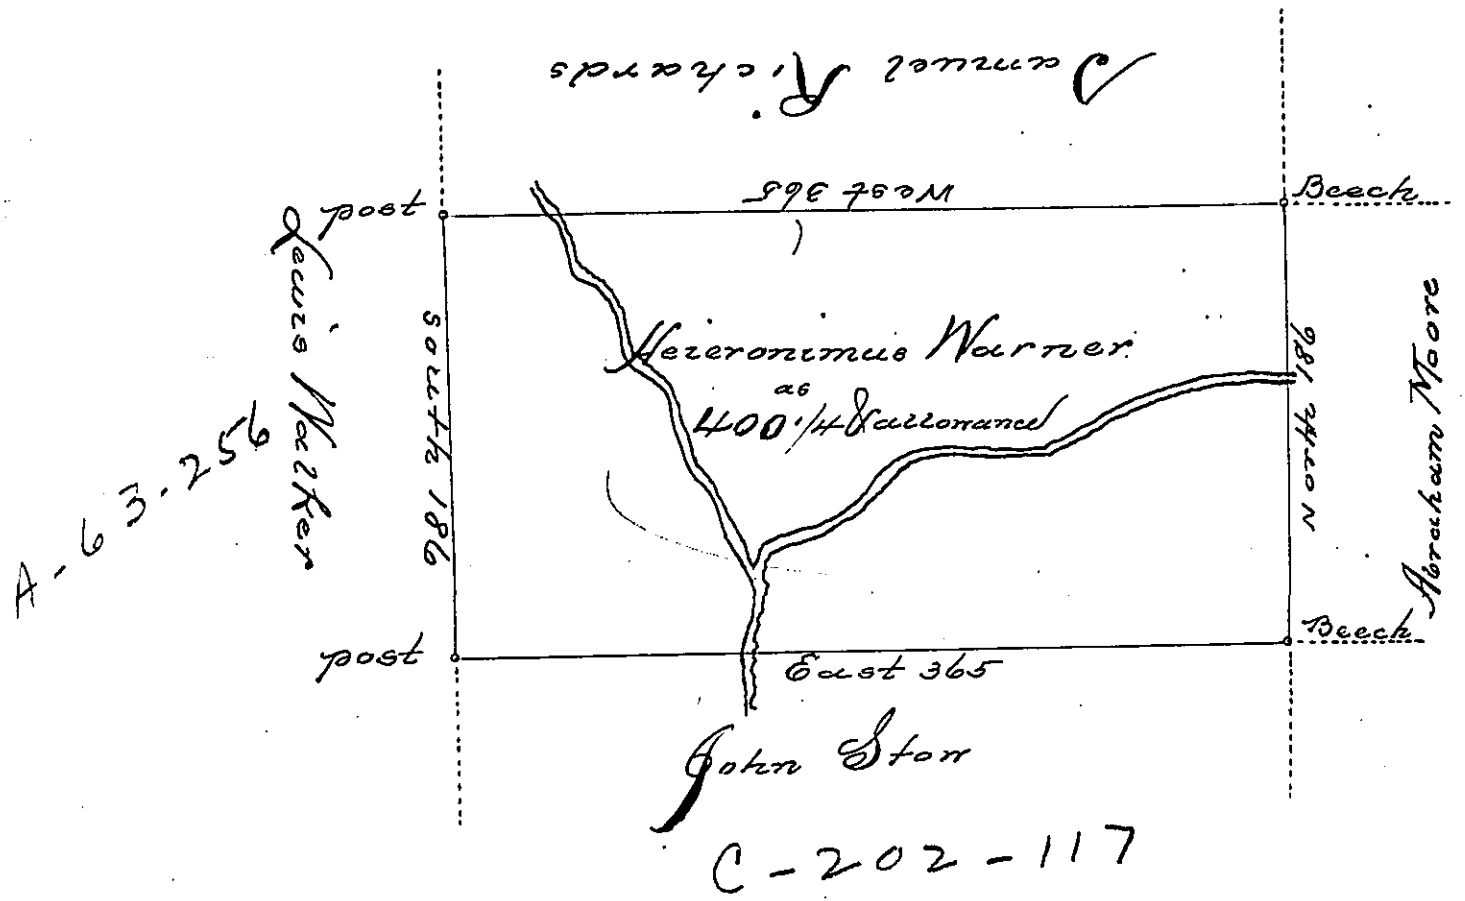 Samuel Richards
West 365
post
Beech
Lewis Walker
South 186
Heieronimus Warner
as
400.¼ & allowance
North 186
Abraham Moore
A-63-256
post
Beech
East 365
John Stow
C-202-117